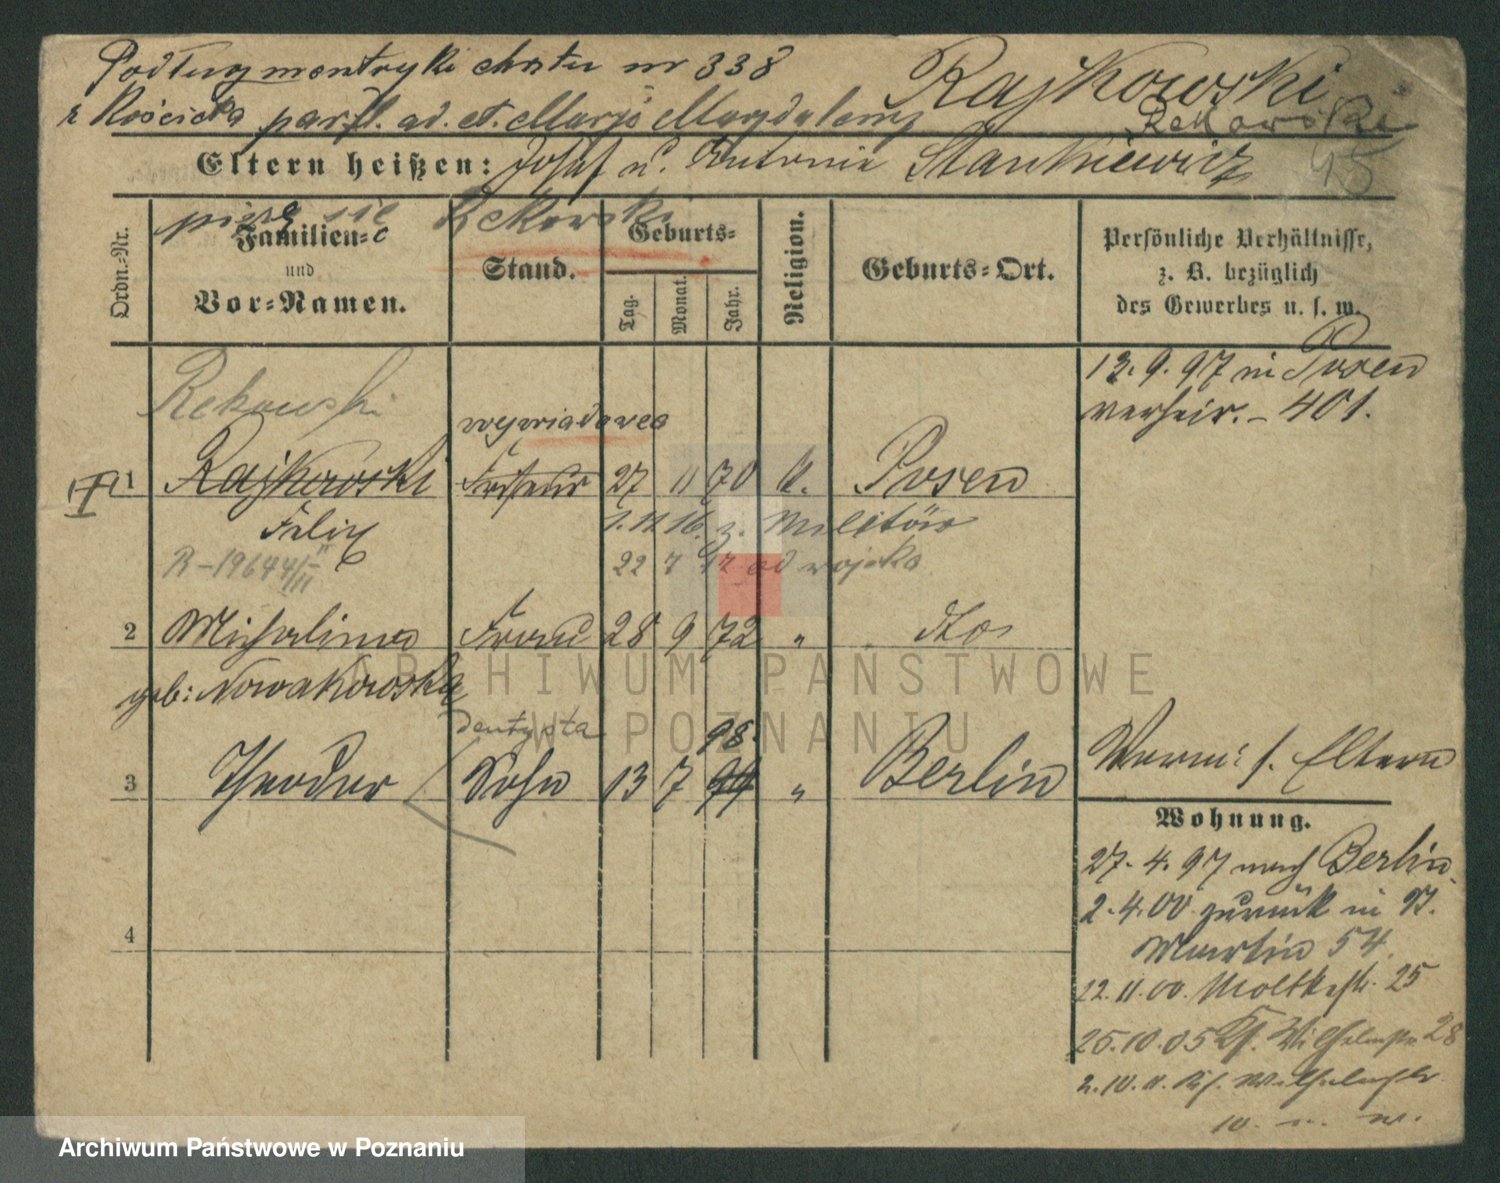 Podług metryki chrztu nr 338
z Kościoła paraf. ad. st. Marję Magdalenę
Rajkowski
Rekowski
95
Eltern heißen: Josef u. Antonie Stankiewicz
pisze się Rekowski
Ordn.-Nr.
Familien-
und
Vor-Namen.
Stand.
Geburts-
Tag.
Monat.
Jahr.
Religion.
Geburts-Ort.
Persönliche Verhältnisse,
z. B. bezüglich
des Gewerbes u. s. w.
13. 9. 97 in Posen
verheir. - 401.
Rekowski
wywiadowca
1 Rajkowski Friseur 27 11 70 k. Posen
Felix
1. 11 16. z. Militär
R-19644/II
22 7 17 od wojska
2 Michalina Frau 28 9 72 " dto
geb: Nowakowska
dentysta
98.
3 Theodor Sohn 13 7 " Berlin
Vorm: s. Eltern
Wohnung.
27. 4. 97 nach Berlin.
2. 4. 00. zurück in St.
Martin 54.
12. 11. 00. Moltkestr. 25
25. 10. 05 Kl. Wilhelmstr 28
2. 10. 11. Kl. Wilhelmstr
10
4
ARCHIWUM PAŃSTWOWE
W POZNANIU
Archiwum Państwowe w Poznaniu